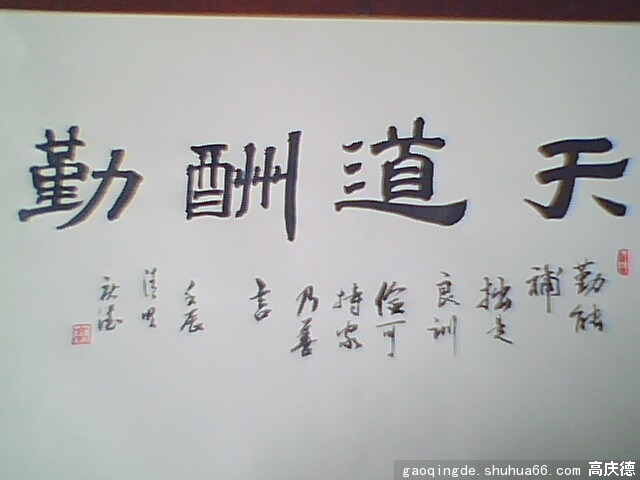 天道酬勤
勤能
補
拙是
良訓
儉可
持家
乃善
言
壬辰
清明
庆德
gaoqingde.shuhua66.com 高庆德